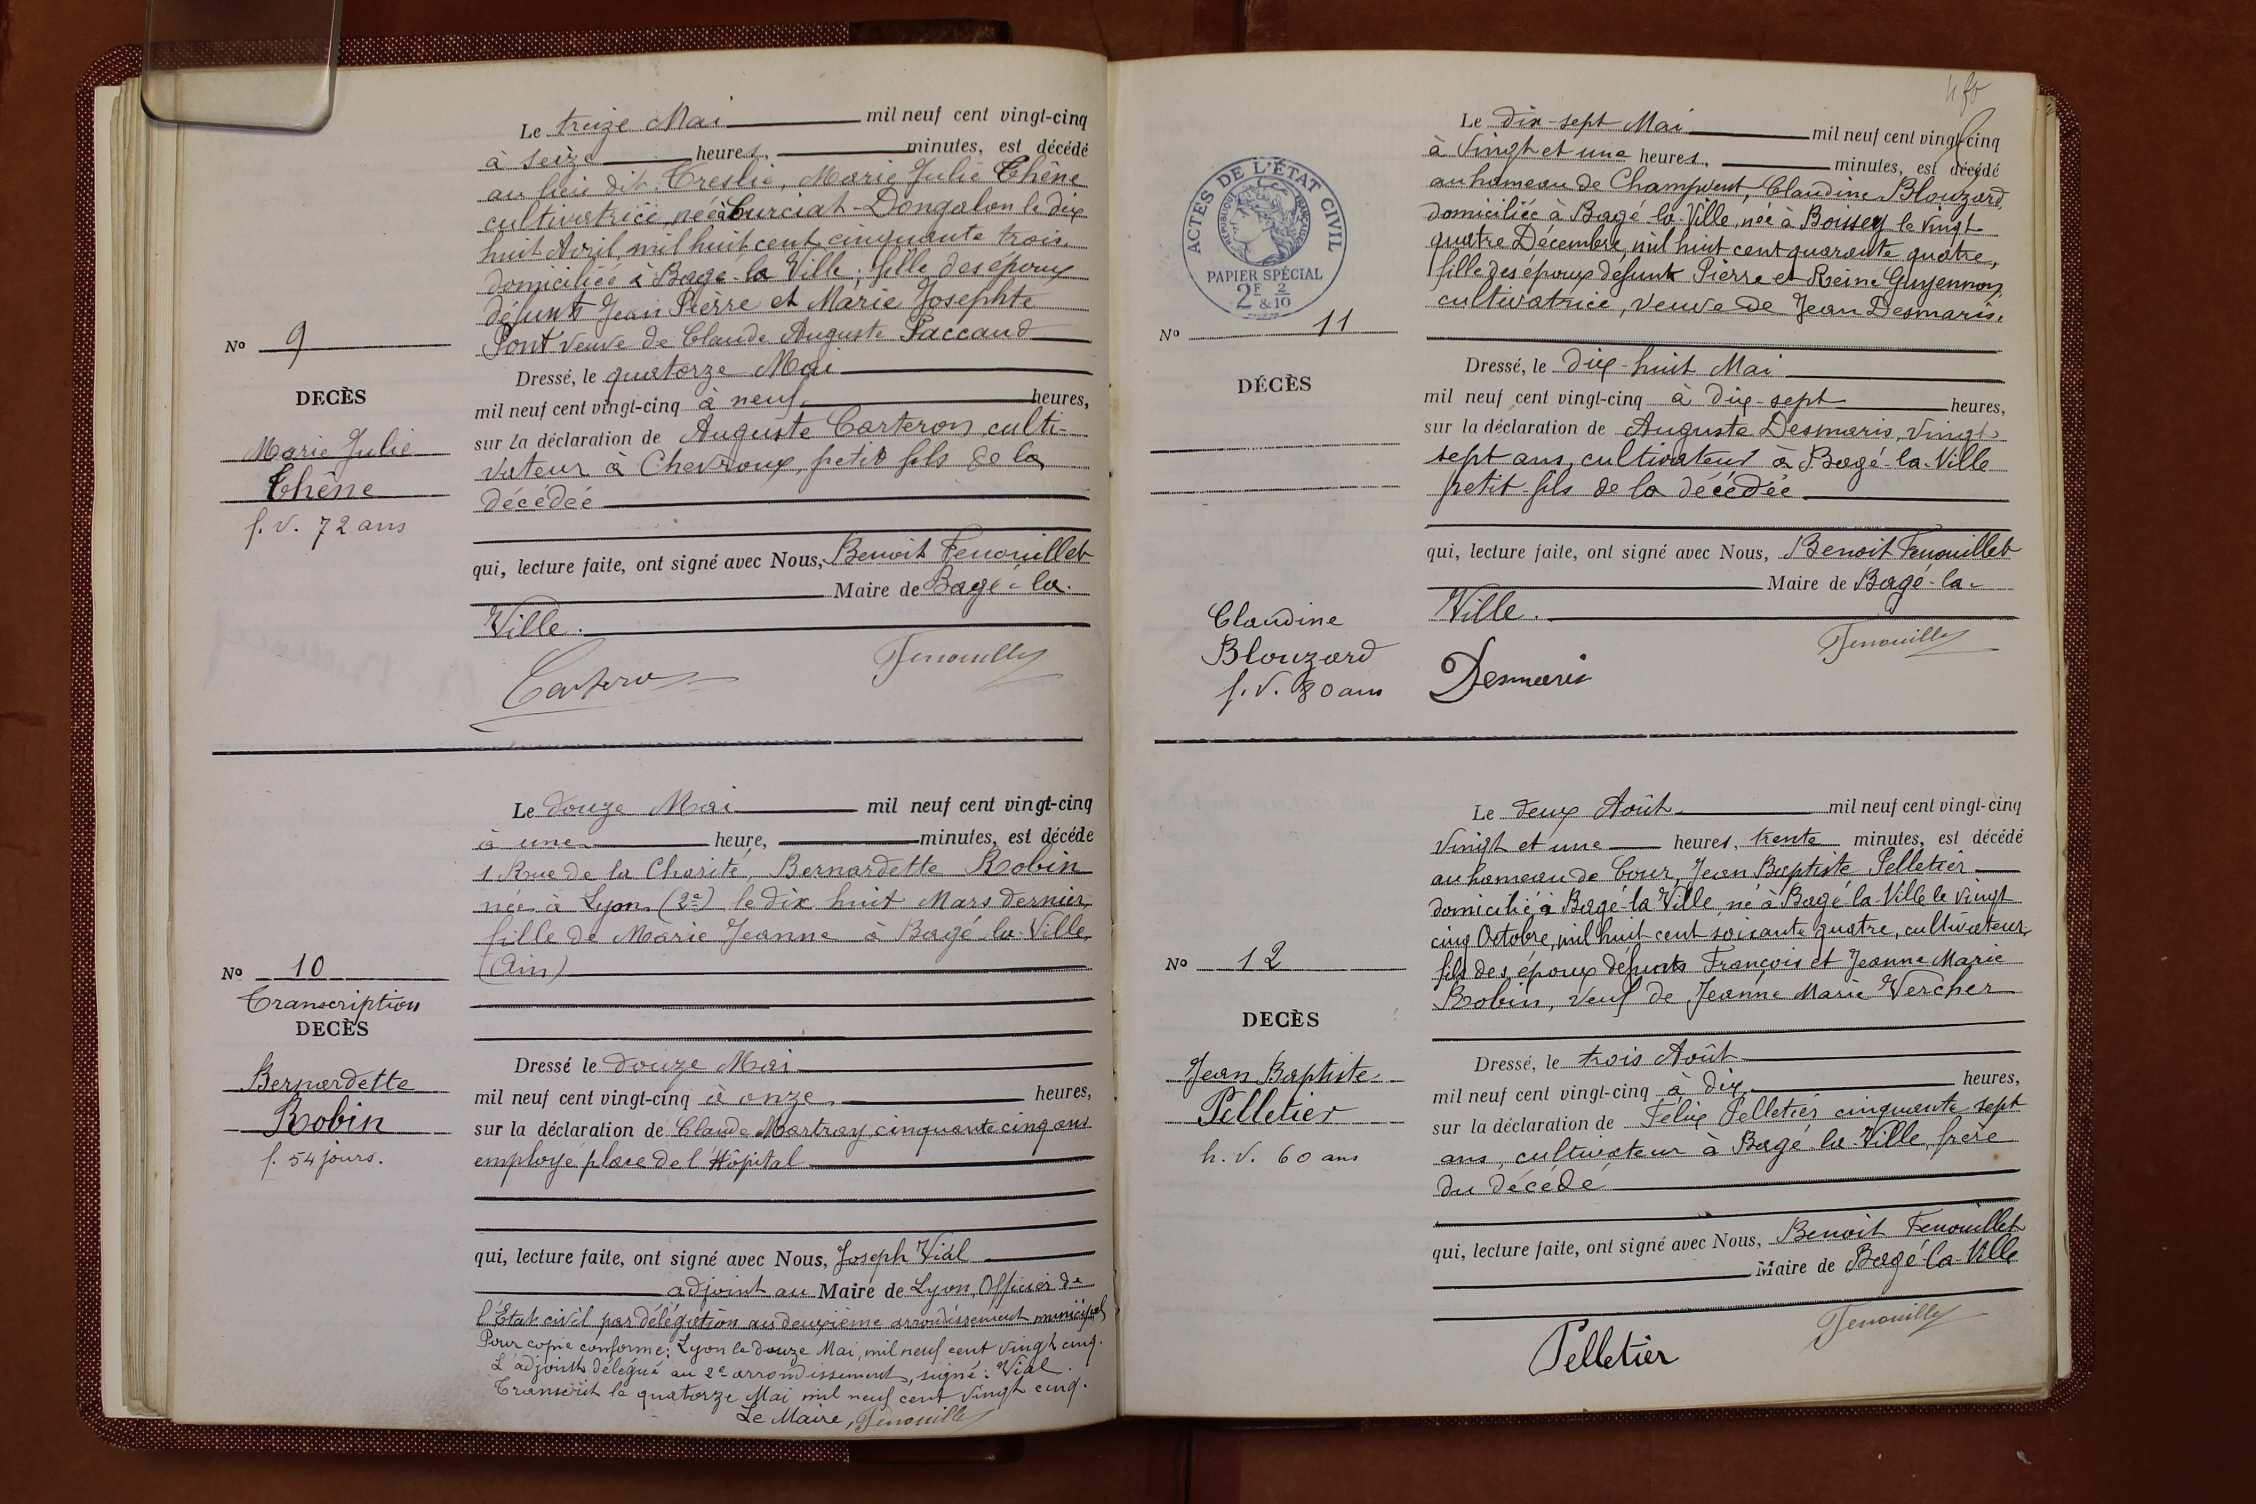 Le treize Mai mil neuf cent vingt-cinq
à seize heures, minutes, est décédé
au lieu dit Creslie, Marie Julie Chêne
cultivatrice, née à Curciat-Dongalon le dix
huit Avril, mil huit cent cinquante trois
domiciliée à Bagé-la Ville, fille des époux
défunts Jean Pierre et Marie Josephte
Pont veuve de Claude Auguste Paccaud
No 9
DECÈS
Marie Julie
Chêne
f. v. 72 ans
Dressé, le quatorze Mai
mil neuf cent vingt-cinq à neuf heures,
sur la déclaration de Auguste Carteron culti-
vateur à Chevroux, petit fils de la
décédée
qui, lecture faite, ont signé avec Nous, Benoit Fenouillet
Maire de Bagé-la-
Ville.
Carteron Fenouillet
Le douze Mai mil neuf cent vingt-cinq
à une heure, minutes, est décédé
1 Rue de la Charité, Bernardette Robin
née à Lyon (2e) le dix huit Mars dernier,
fille de Marie Jeanne à Bagé-la-Ville,
(Ain)
No 10
Transcription
DECÈS
Bernardette
Robin
f. 54 jours.
Dressé le douze Mai
mil neuf cent vingt-cinq à onze heures,
sur la déclaration de Claude Martray, cinquante cinq ans
employé place de l'Hôpital
qui, lecture faite, ont signé avec Nous, Joseph Vial
adjoint au Maire de Lyon, Officier de
l'Etat civil par délégation au deuxième arrondissement municipal
Pour copie conforme: Lyon le douze Mai, mil neuf cent vingt cinq.
L'adjoint délégué au 2e arrondissement, signé: Vial.
Transcrit le quatorze Mai mil neuf cent vingt cinq.
Le Maire, Fenouillet
ACTES DE L'ÉTAT CIVIL
RÉPUBLIQUE FRANÇAISE
PAPIER SPÉCIAL
2F 2
& 10
Le dix-sept Mai mil neuf cent vingt-cinq
à vingt et une heures, minutes, est décédé
au hameau de Champvent, Claudine Blouzard
domiciliée à Bagé la Ville, née à Boissey le vingt
quatre Décembre, mil huit cent quarante quatre,
fille des époux défunts Pierre et Reine Guyennon,
cultivatrice, veuve de Jean Desmaris.
No 11
DÉCÈS
Dressé, le dix-huit Mai
mil neuf cent vingt-cinq à dix-sept heures,
sur la déclaration de Auguste Desmaris, vingt-
sept ans, cultivateur à Bagé-la-Ville
petit-fils de la décédée
qui, lecture faite, ont signé avec Nous, Benoit Fenouillet
Maire de Bagé-la-
Ville.
Claudine
Blouzard
f. v. 80 ans
Desmaris Fenouillet
Le deux Août mil neuf cent vingt-cinq
vingt et une heures, trente minutes, est décédé
au hameau de Cour, Jean Baptiste Pelletier
domicilié à Bagé-la Ville, né à Bagé-la-Ville le vingt
cinq Octobre, mil huit cent soixante quatre, cultivateur,
fils des époux défunts François et Jeanne Marie
Robin, veuf de Jeanne Marie Vercher
No 12
DECÈS
Jean Baptiste
Pelletier
h. v. 60 ans
Dressé, le trois Août
mil neuf cent vingt-cinq à dix heures,
sur la déclaration de Félix Pelletier cinquante sept
ans, cultivateur à Bagé-la-Ville, frère
du décédé
qui, lecture faite, ont signé avec Nous, Benoit Fenouillet
Maire de Bagé-la-Ville
Pelletier Fenouillet